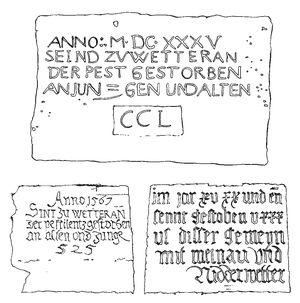 ANNO: M·DC XXXV
SEIND ZV WETTERAN
DER PEST GESTORBEN
AN JUN=GEN UND ALTEN
CCL
Anno 1567
SINT ZU WETTERAN
der pestilentz gestorben
an alten und junge
525
im jar xv xx und en
seint gestoben v xxx
us disser gemeyn
mit melnau und
Nidderwetter